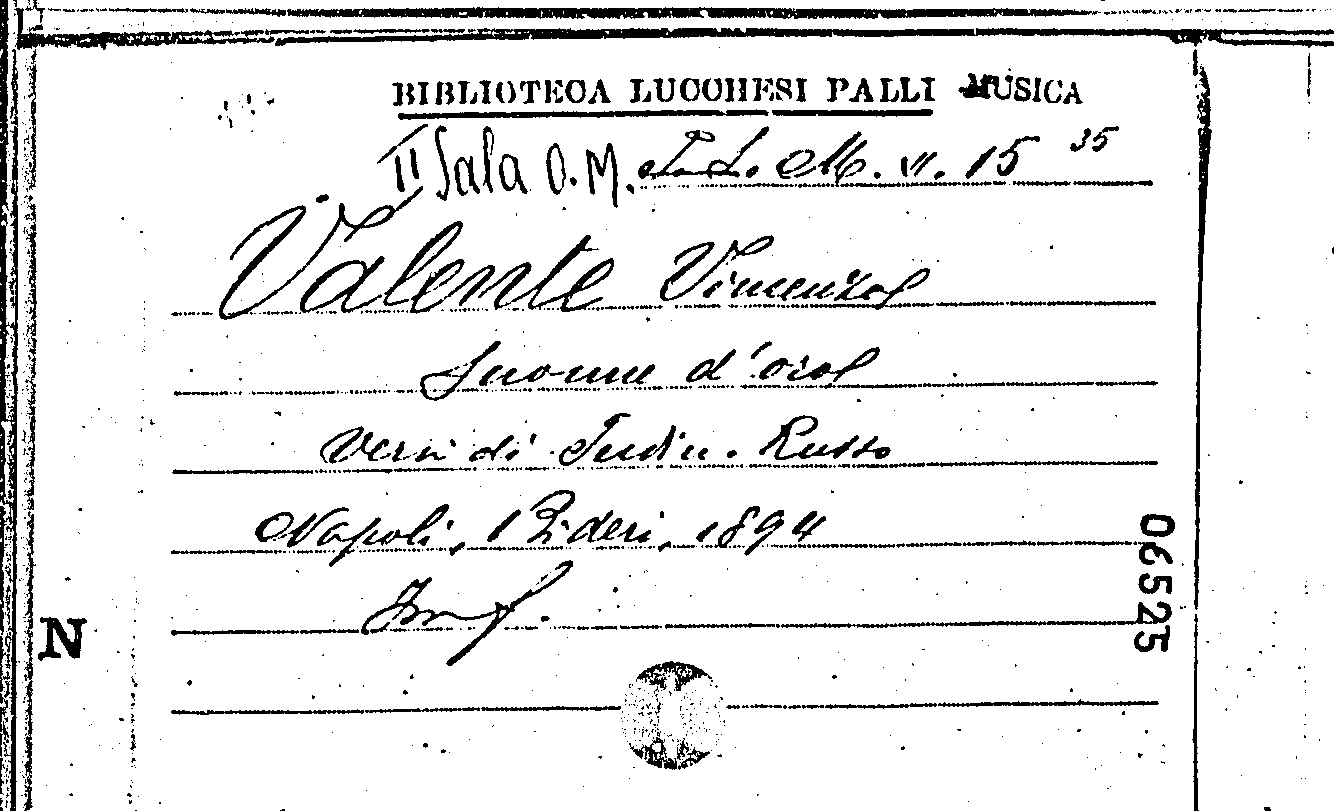 BIBLIOTECA LUCCHESI PALLI MUSICA
II Sala O. M. M. VI. 15 35
Valente Vincenzo
Suonno d'oro
Versi di Ferdin. Russo
Napoli, Bideri, 1894
In f.
06525
N